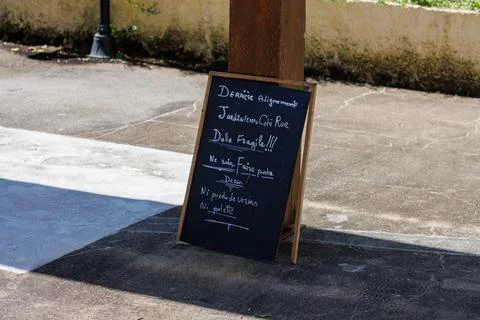 Dernière Alignements
Jardinières Côté Rue
Dalle Fragile !!!
Ne rien Faire porter
Dessus
Ni pieds de
Ni palette